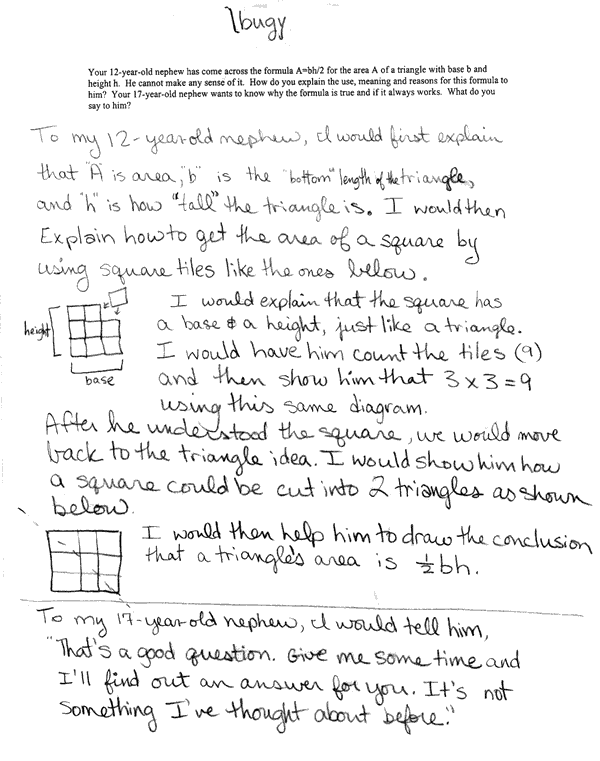 1bugy
Your 12-year-old nephew has come across the formula A=bh/2 for the area A of a triangle with base b and
height h. He cannot make any sense of it. How do you explain the use, meaning and reasons for this formula to
him? Your 17-year-old nephew wants to know why the formula is true and if it always works. What do you
say to him?
To my 12-year-old nephew, I would first explain
that "A" is area, "b" is the "bottom" length of the triangle,
and "h" is how "tall" the triangle is. I would then
Explain how to get the area of a square by
using square tiles like the ones below.
I would explain that the square has
a base & a height, just like a triangle.
height
I would have him count the tiles (9)
and then show him that 3 x 3 = 9
base
using this same diagram.
After he understood the square, we would move
back to the triangle idea. I would show him how
a square could be cut into 2 triangles as shown
below.
I would then help him to draw the conclusion
that a triangle's area is ½ bh.
To my 17-year-old nephew, I would tell him,
"That's a good question. Give me some time and
I'll find out an answer for you. It's not
something I've thought about before."